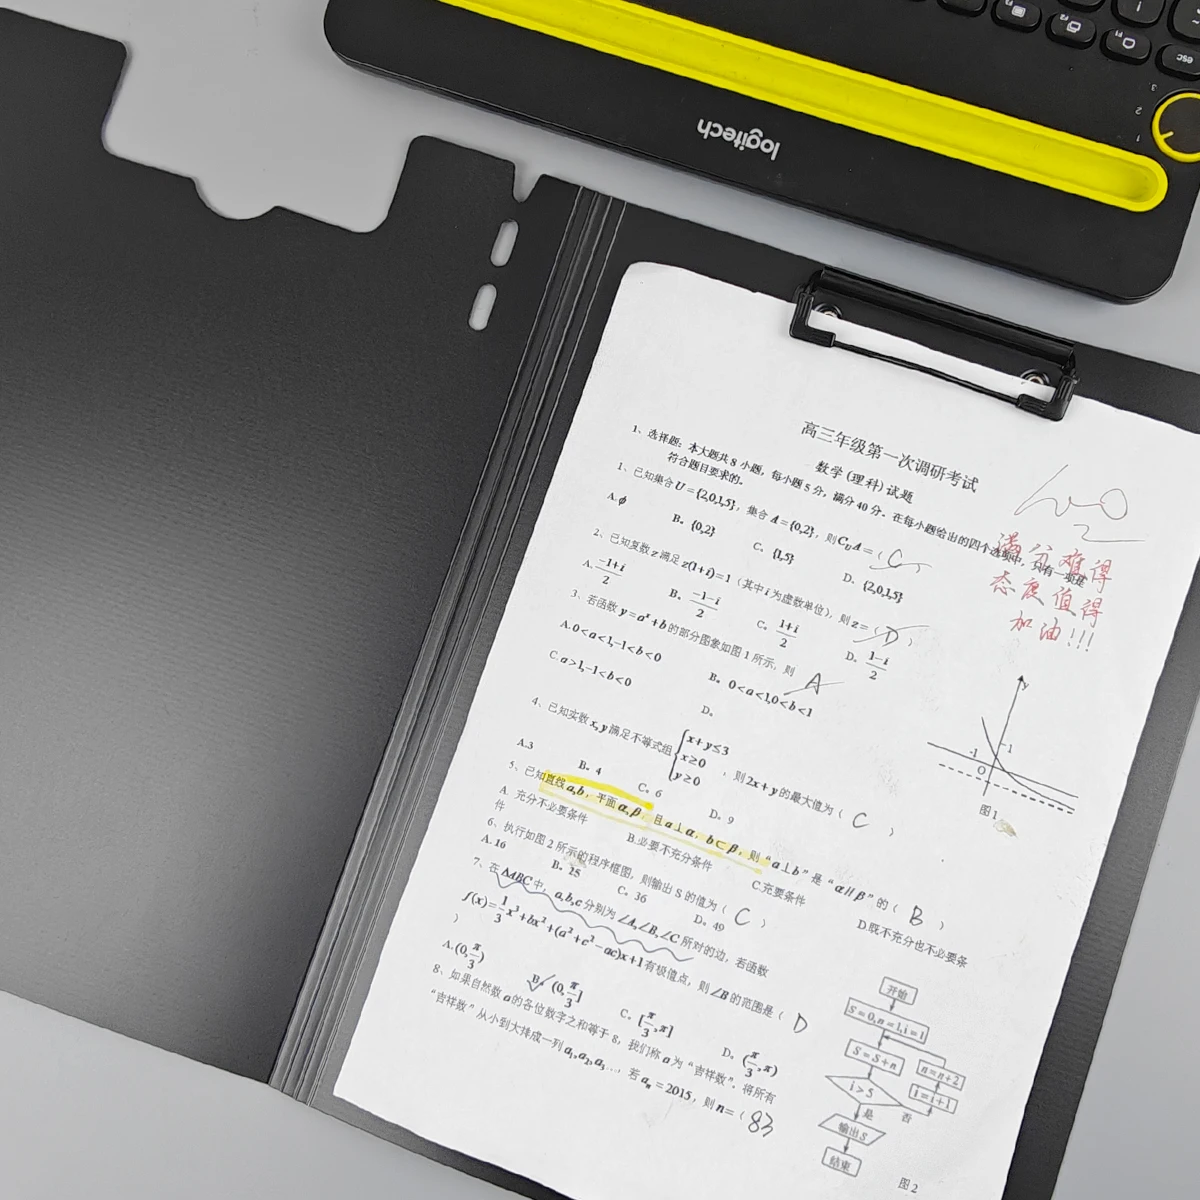 logitech
esc
F1
F2
F3
1
2
3
高三年级第一次调研考试
数学(理科)试题
1、选择题：本大题共 8 小题，每小题 5 分，满分 40 分。在每小题给出的四个选项中，只有一项是
符合题目要求的。
1、已知集合 U={2,0,1,5}，集合 A={0,2}，则C_U A=（ C ）
A.φ B。{0,2} C。{1,5} D。{2,0,1,5}
2、已知复数 z 满足 z(1+i)=1（其中 i 为虚数单位），则 z=（ D ）
A.(-1+i)/2 B。(-1-i)/2 C。(1+i)/2 D。(1-i)/2
3、若函数 y=a^x+b 的部分图象如图 1 所示，则 A
A.0<a<1,-1<b<0 B。0<a<1,0<b<1
C.a>1,-1<b<0 D。
4、已知实数 x,y 满足不等式组{x+y≤3
x≥0
y≥0
，则 2x+y 的最大值为（ C ）
A.3 B。4 C。6 D。9
5、已知直线 a,b，平面 α,β，且 a⊥α，b⊂β，则“a⊥b”是“α//β”的（ B ）
A. 充分不必要条件 B.必要不充分条件 C.充要条件 D.既不充分也不必要条
件
6、执行如图 2 所示的程序框图，则输出 S 的值为（ C ）
A.16 B。25 C。36 D。49
7、在 ΔABC 中，a,b,c 分别为 ∠A,∠B,∠C 所对的边，若函数
f(x)=1/3x³+bx²+(a²+c²-ac)x+1 有极值点，则 ∠B 的范围是（ D
）
A.(0,π/3) B。(0,π/3] C。[π/3,π] D。(π/3,π)
8、如果自然数 a 的各位数字之和等于 8，我们称 a 为“吉祥数”。将所有
“吉祥数”从小到大排成一列 a₁,a₂,a₃…，若 aₙ=2015，则 n=（ 83
满分难得
态度值得
加油!!!
y
-1
1
O
x
图1
开始
S=0,n=1,i=1
S=S+n
n=n+2
i>5
i=i+1
是
否
输出S
结束
图 2